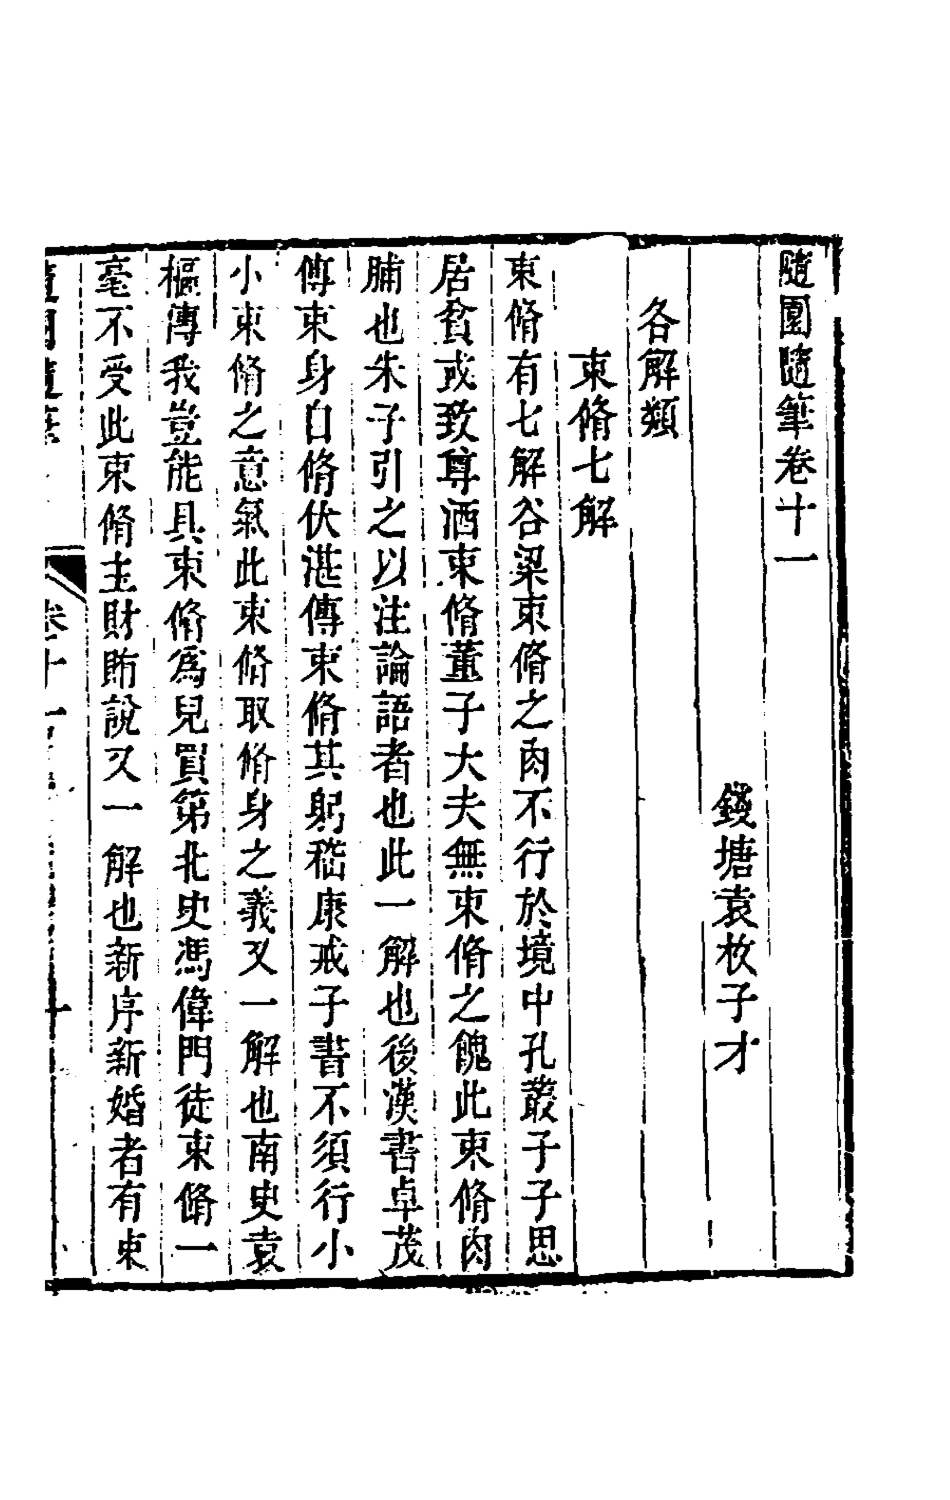 隨園隨筆卷十一
錢塘袁枚子才
各解類
束脩七解
束脩有七解谷梁束脩之肉不行於境中孔叢子子思
居貧或致尊酒束脩董子大夫無束脩之餽此束脩肉
脯也朱子引之以注論語者也此一解也後漢書卓茂
傳束身自脩伏湛傳束脩其躬嵇康戒子書不須行小
小束脩之意氣此束脩取脩身之義又一解也南史袁
樞傳我豈能具束脩爲兒買第北史馮偉門徒束脩一
毫不受此束脩主財賄說又一解也新序新婚者有束
隨園隨筆
卷十一